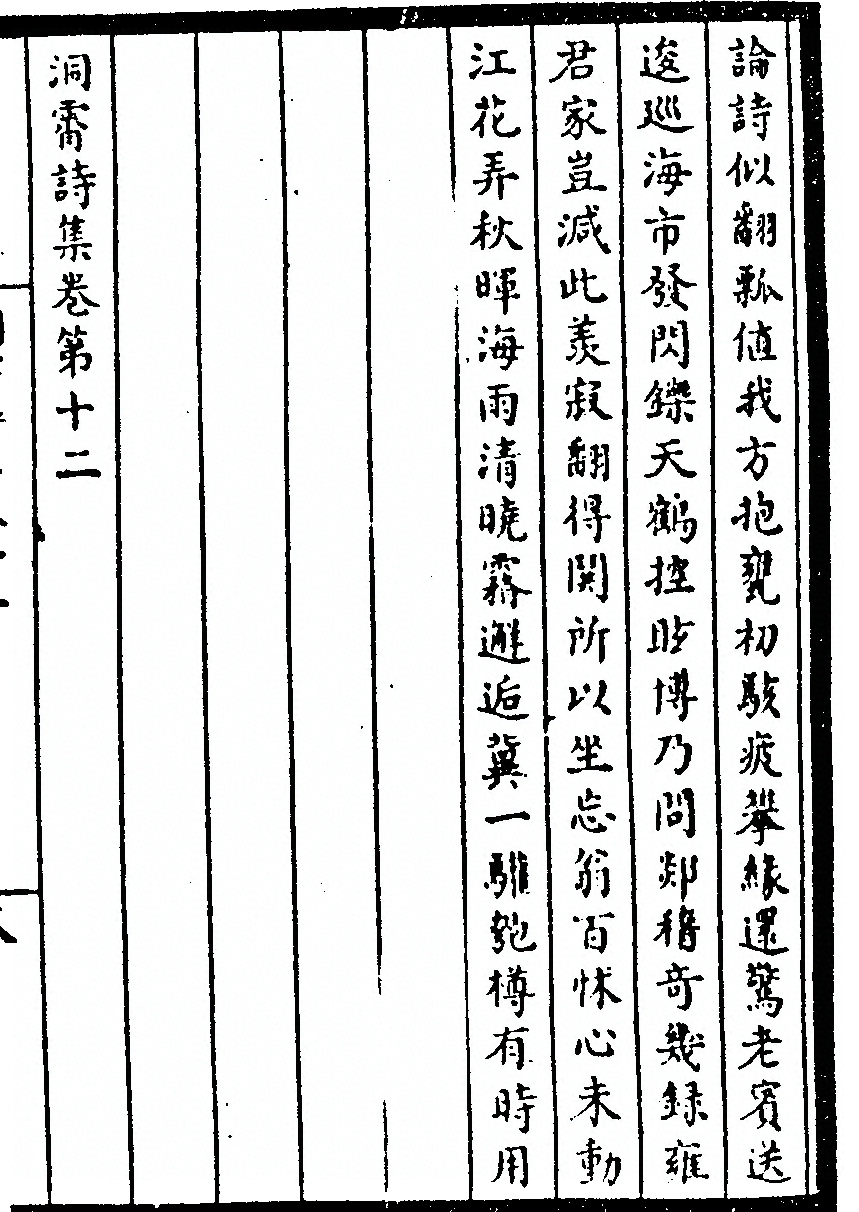 論詩似翻瓢值我方抱甕初駭疲攀緣還驚老賓送
逡巡海市發閃鑠天鶴控眙博乃問郯稽奇幾録雍
君家豈減此羨寂翻得関所以坐忘翁百怵心未動
江花弄秋暉海雨清曉霿邂逅冀一驩匏樽有時用
洞霄詩集卷第十二